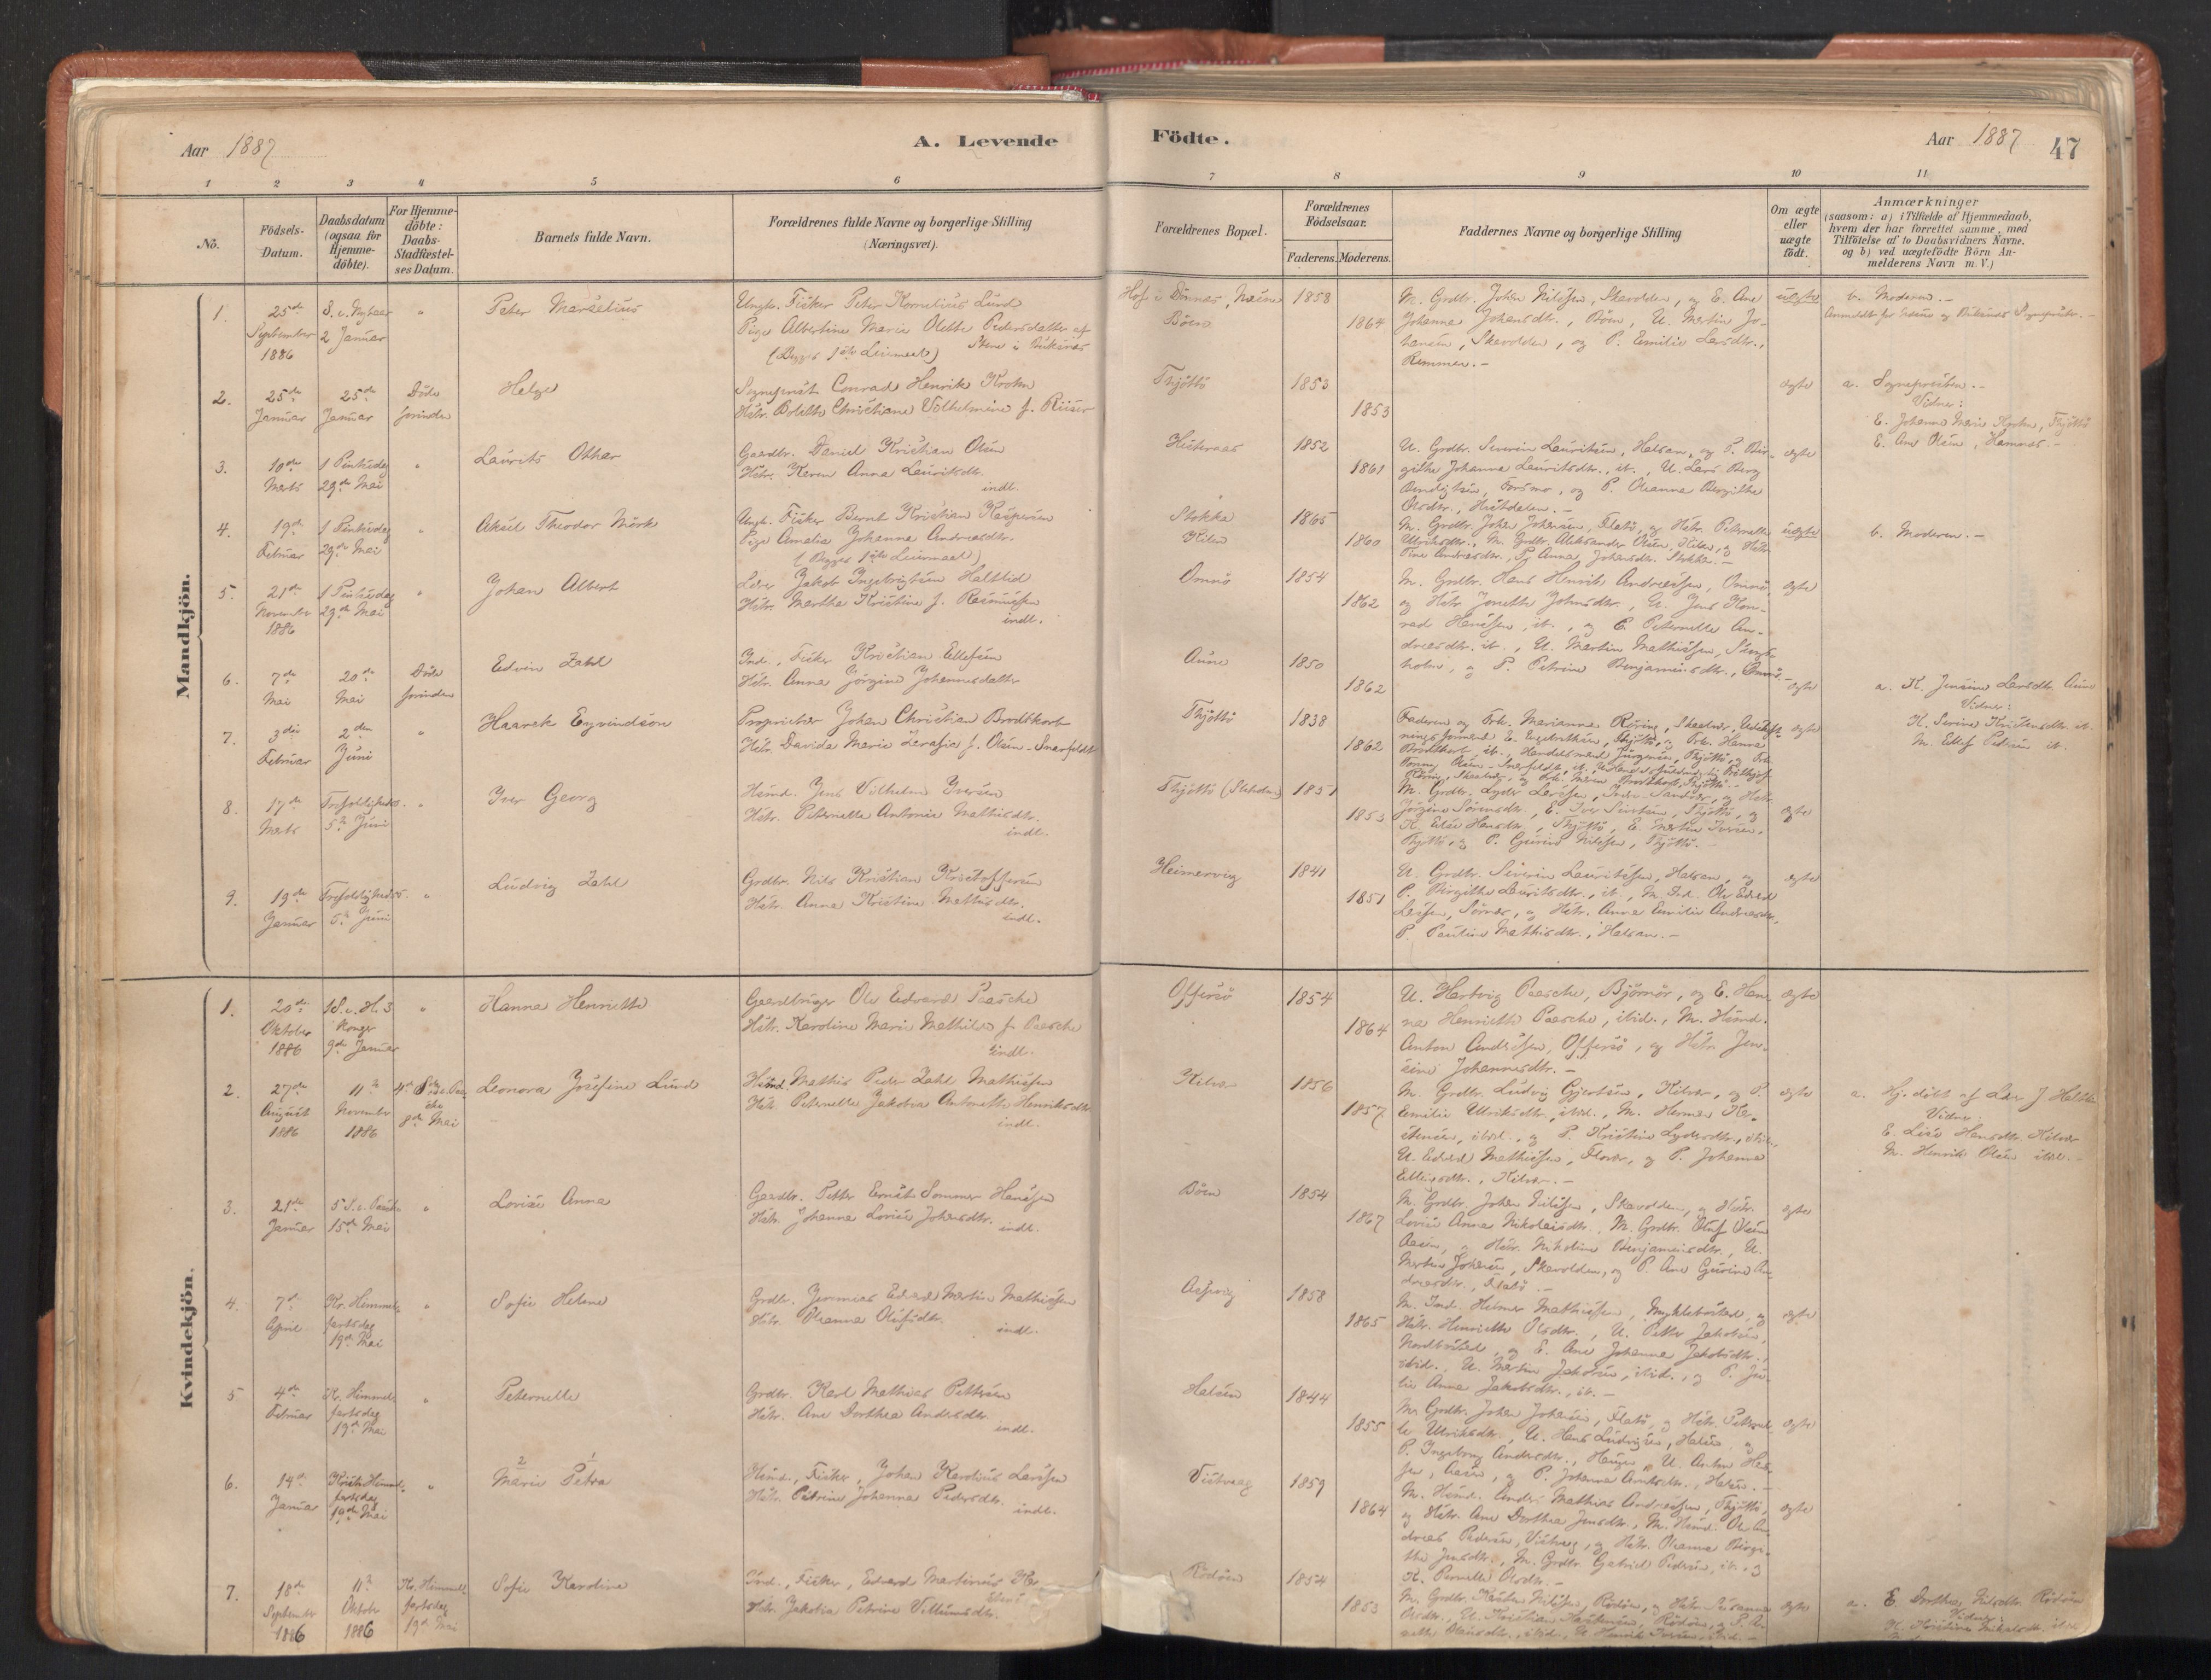 Aar 1887
A. Levende
Födte.
Aar 1887
47
1 2 3 4 5 6 7 8 9 10 11
No.
Födsels-
Datum.
Daabsdatum
(ogsaa for
Hjemme-
döbte).
For Hjemme-
döbte:
Daabs-
Stadfæstel-
ses Datum.
Barnets fulde Navn.
Forældrenes fulde Navne og borgerlige Stilling
(Næringsvei).
Forældrenes Bopæl.
Forældrenes
Födselsaar.
Faderens. Moderens.
Faddernes Navne og borgerlige Stilling
Om ægte
eller
uægte
födt.
Anmærkninger
(saasom: a) i Tilfælde af Hjemmedaab,
hvem der har forrettet samme, med
Tilföielse af to Daabsvidners Navne.
og b) ved uægtefödte Börn An-
melderens Navn m. V.)
Mandkjön.
1.
25de
September
1886
S. e. Nytaar
2 Januar
Peter Marselius
Ungk. Fisker Peter Kornelius Lund
Pige Albertine Marie Olette Pedersdatter af
(Begges 1ste Leiermaal)
Hof i Dönnes, Nesne
Böen
1858
1864
M. Grdbr. Johan Nilssen, Skavolden, og E. Ane
Johanna Johansdtr., Böen, U. Martin Jo-
hansen, Skavolden, og P. Emilie Larsdtr.,
Remmen.-
uægte
b. Moderen.-
2.
25de
Januar
25de
Januar
Döde
forinden
Helge
Sognepræst Conrad Henrik Krohn
Hstr. Bolette Christiane Vilhelmine f. Riiser
Thjöttö
1853
1853
ægte
a. Sognepræsten.-
Vidner:
E. Johanne Marie Krohn, Thjöttö
E. Ane Olsen, Hamnes.-
3.
10de
Marts
1 Pintsedag
29de Mai
Laurits Othar
Gaardbr. Daniel Kristian Olsen
Hstr. Karen Anna Lauritsdtr.
indl.
1852
1861
U. Grdbr. Severin Lauritsen, Halsan, og P. Bir-
githe Johanna Lauritsdtr., ib., U. Lars Berg
Bendigtsen, Forsmo, og P. Oleanna Bergithe
Olsdtr.,
ægte
4.
19de
Februar
1 Pintsedag
29de Mai
Aksel Theodor Mörk
Ungk. Fisker Bernt Kristian Kaspersen
Pige Amalia Johanna Andreasdtr.
(Begges 1ste Leiermaal)
Stokka
Kilen
1865
1860
M. Grdbr. Johan Johansen, Flatö, og Hstr. Peternelle
Ulriksdtr., M. Grdbr. Aleksander Olsen, Kilen, og Hstr.
Andreasdtr., P. Anna Johansdtr. Stokka.-
uægte
b. Moderen.-
5.
21de
November
1886
1 Pintsedag
29de Mai
Johan Albert
Lærer Jakob Ingebrigtsen Haltlid
Hstr. Martha Kristine f. Rasmussen
indl.
Omnö
1854
1862
M. Grdbr. Hans Henrik Andreassen, Omnö,
og Hstr. Jonetta Johnsdtr., U. Jens Kon-
rad Hanssen, ib., og P. Peternelle An-
dreasdtr. ib., U. Martin Mathiesen,
holm, og P. Petrine Benjaminsdtr., Omnö.-
ægte
6.
7de
Mai
20de
Mai
Döde
forinden
Edvin Zahl
Ind., Fisker Kristian Ellefsen
Hstr. Anna Jörgine Johannesdatter
Aune
1850
1862
ægte
a. K. Jensine Larsdtr. Aune
Vidner:
K. Serine Kristensdtr. ib.
M. Ellef Pedersen ib.
7.
3die
Februar
2den
Juni
Haarek Eyvindsön
Proprietær Johan Christian Brodtkorb
Hstr. Davida Maria Zerafia f. Olsen-Snerfeldt
Thjöttö
1838
1862
Faderen og Frk. Marianne Röring, Skaalvær,
E. Engebrethsen, Thjöttö, og Frk. Hanna
Brodtkorb, ib., Handelsmand Jürgensen, Thjöttö, og Frk.
Fanny Olsen-Snerfeldt, ib.,
Röring, Skaalvær, og Frk. Maren Brodtkorb, Thjöttö.-
ægte
8.
17de
Marts
Trefoldigheds.
5te Juni
Iver Georg
Husmd. Jens Vilhelm Iversen
Hstr. Peternelle Antonie Mathisdtr.
indl.
Thjöttö
1851
1853
M. Grdbr. Lyder Larssen, Sandvær, og Hstr.
Jörgine Sörensdtr., E. Iver Sivertsen, Thjöttö, og
K. Elise Hansdtr., Thjöttö, E. Martin Iversen,
Thjöttö, og P. Gurine Nilssen, Thjöttö.-
ægte
9.
19de
Januar
Trefoldigheds.
5te Juni
Ludvig Zahl
Grdbr. Nils Kristian Kristoffersen
Hstr. Anna Kristine Mathisdtr.
indl.
Heimervig
1841
1851
U. Grdbr. Siverin Lauritssen, Halsan, og
P. Birgitha Lauritsdtr., ib., M. Ind. Ole Edvard
Larssen, Sörnes, og Hstr. Anne Emilie Andreasdtr.,
P. Pauline Mathisdtr., Halsan.-
ægte
Kvindekjön.
1.
20de
Oktober
1886
1 S. e. H. 3
Konger
9de Januar
Hanna Henriette
Gaardbruger Ole Edvard Paasche
Hstr. Karoline Marie Mathilde f. Paasche
indl.
Offersö
1854
1864
U. Hartvig Paasche, Björnör, og E. Han-
na Henriette Paasche, ibid., M. Husmd.
Anton Andersen, Offersö, og Hstr. Jen-
sine Johannesdtr.-
ægte
2.
27de
August
1886
11te
November
1886
8de Mai
Leonora Josefine Lund
Husmd. Mathis Peder Zahl Mathissen
Hstr. Peternelle Jakobia Antonette Henriksdtr.
indl.
Kilvær
1856
1857
M. Grdbr. Ludvig Gjertsen, Kilvær, og P.
Emilie Ulriksdtr., ibid., M. Herman Kar-
stensen, ibid., og P. Kristine Lydersdtr., ibid.,
U. Edvard Mathiesen, Flovær, og P. Johanna
Ellingsdtr., Kilvær.-
ægte
a. Hj. döbt af Lærer J. Haltlid
Vidner:
E. Lise Hansdtr. Kilvær
M. Henrik Olsen ibid.-
3.
21de
Januar
5 S. e. Paaske
15de Mai
Lovise Anna
Gaardbr. Petter Ernst Sommer Hanssen
Hstr. Johanna Lovise Johansdtr.
indl.
Böen
1854
1867
M. Grdbr. Johan Nilssen, Skavolden, og Hstr.
Lovise Anna Nikolaisdtr., M. Grdbr. Oluf Olsen
Aasen, og Hstr. Nikoline Benjaminsdtr., U.
Martin Johansen, Skavolden, og P. Ane Gurine An-
dreasdtr., Flatö.-
ægte
4.
7de
April
Kr. Himmel-
fartsdag
19de Mai
Sofie Helene
Grdbr. Jeremias Edvard Martin Mathiesen
Hstr. Oleanna Olufsdtr.
indl.
1858
1865
M. Ind. Helmer Mathissen, Myklebostad, og
Hstr. Henriette Olsdtr., U. Petter Jakobsen,
Nordbostad, og E. Ane Johanna Jakobsdtr.,
ibid., U. Martin Jakobsen, ibid., og P. Ju-
lie Anna Jakobsdtr., ib.-
ægte
5
4de
Februar
Kr. Himmel-
fartsdag
19de Mai
Peternelle
Grdbr. Karl Mathias Pettersen
Hstr. Ane Dorthea Andersdtr.
indl.
Halsen
1844
1855
M. Grdbr. Johan Johansen, Flatö, og Hstr. Peternel-
le Ulriksdtr., U. Hans Ludvigsen, Halsen, og
P. Ingeborg Andersdtr., U. Anton Han-
sen, Aasen, og P. Johanna Arntsdtr., Halsen.-
ægte
6.
14de
Januar
Kristi Himmel-
fartsdag
19de Mai
2 1
Marie Petra
Husmd., Fisker, Johan Karelius Larssen
Hstr. Petrine Johanna Pedersdtr.
indl.
Vistvaag
1859
1864
M. Husmd. Anders Mathias Andreassen, Thjöttö,
og Hstr. Ane Dorthea Jensdtr., M. Husmd. Ole An-
dreas Pedersen, Vistvaag, og Hstr. Oleanna Birgi-
the Jensdtr., M. Grdbr. Gabriel Pedersen, ib., og
K. Pernille Olsdtr.-
ægte
7.
18de
September
1886
11te
Oktober
1886
Kr. Himmel-
fartsdag
19de Mai
Sofie Karoline
Ind., Fisker, Edvard Martinus
Hstr. Jakobia Petrine Villumsdtr.
Rödöen
1854
1853
M. Grdbr. Karsten Nilssen, Rödöen, og Hstr. Susanna
Olsdtr., U. Kristian Karstensen, Rödöen, og P.
ægte
a. E. Dorthea Nilsdtr. Rödöen
Vidner: